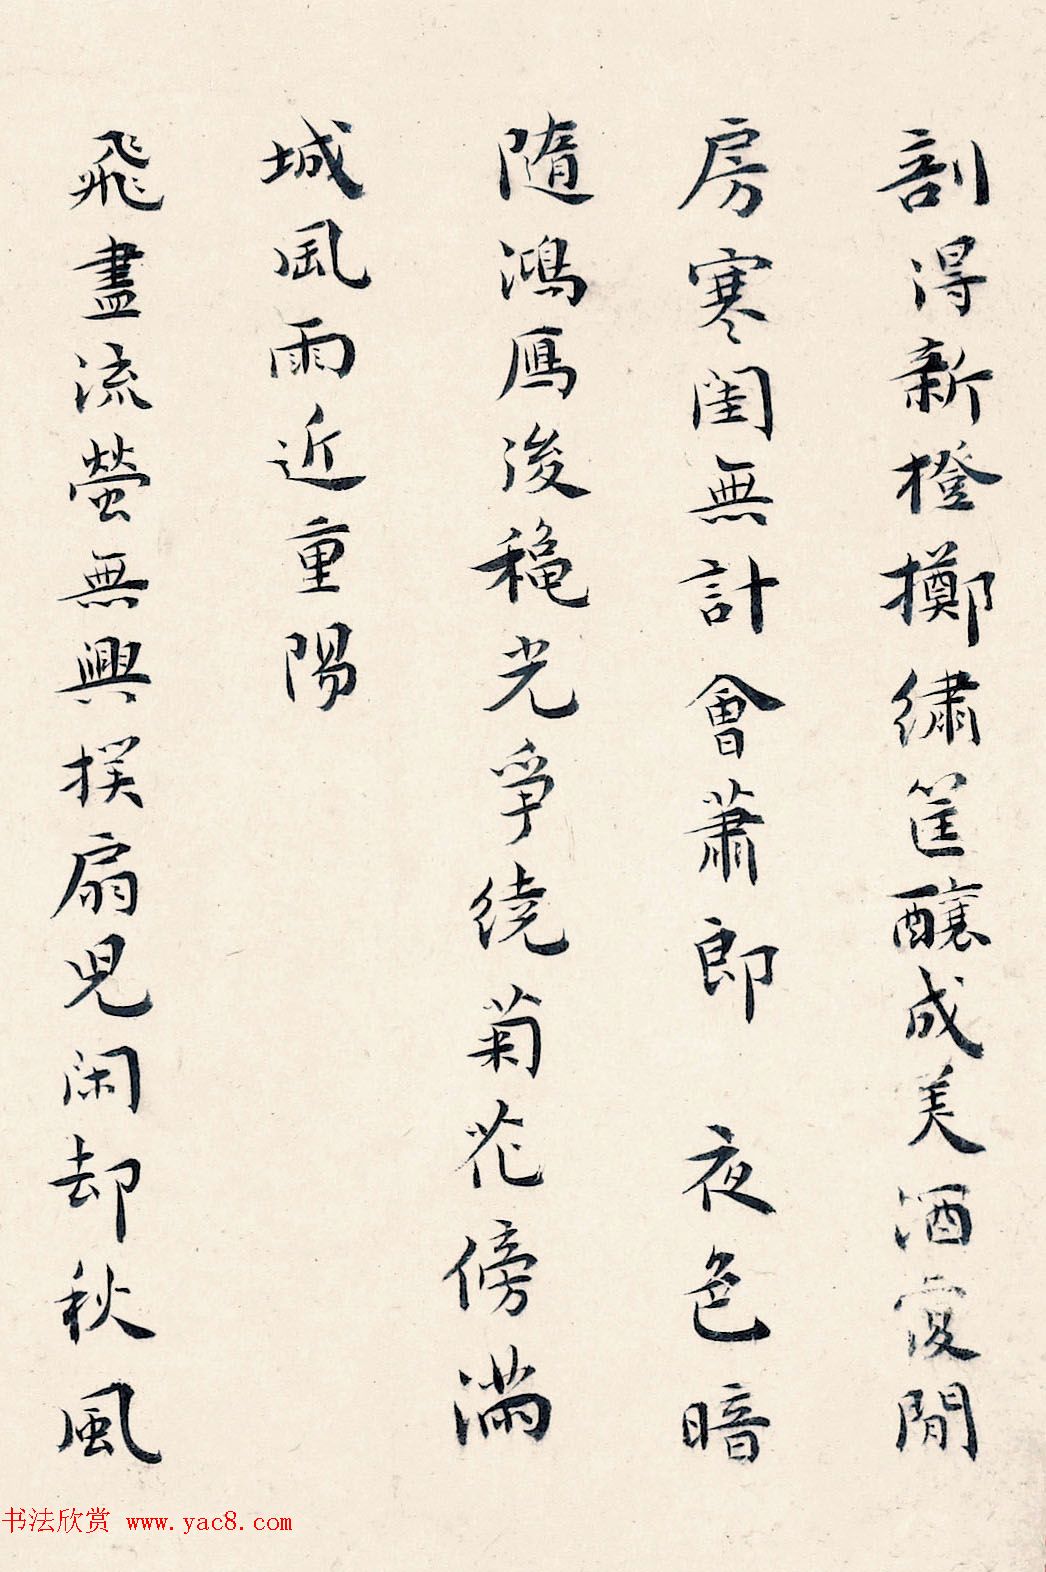 剖得新橙擲繡筐釀成美酒復閒
房寒閨無計會蕭郎 夜色暗
隨鴻鴈後穐光爭繞菊花傍滿
城風雨近重陽
飛盡流螢無興撲扇兒閑却秋風
书法欣赏 www.yac8.com